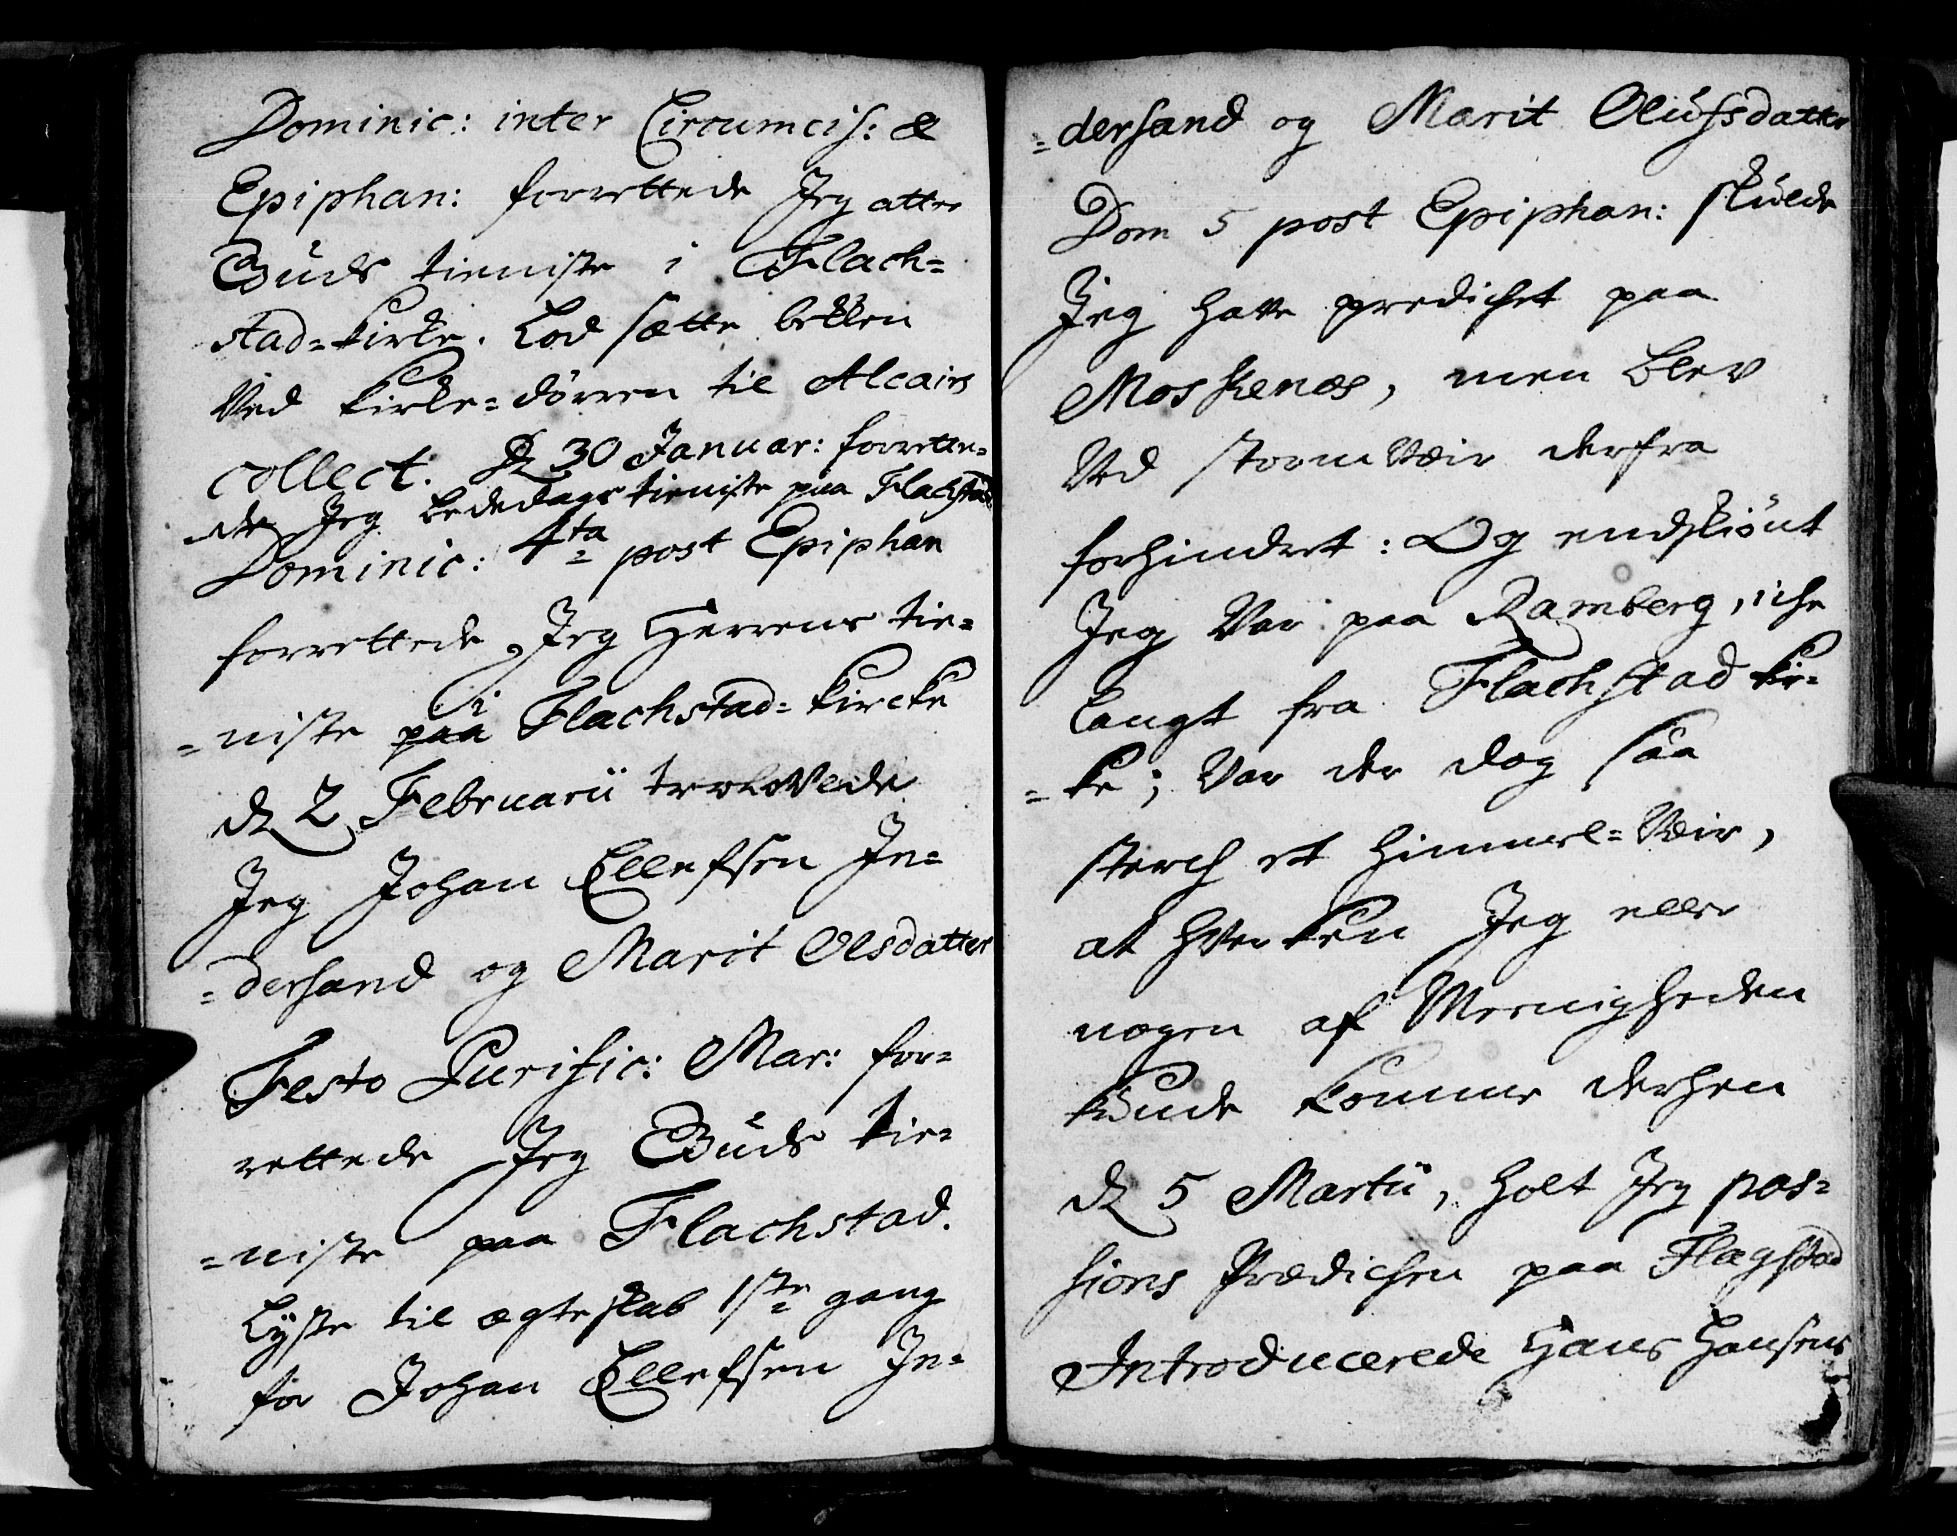 Dominic: inter Circumcis: &
Epiphan: forrettede Jeg atter
Guds tieniste i Flach=
stad=kirke. Lod sætte bekken
Ved kirke=dörren til Alcairs
collect. D 30 Januar: forrette=
de Jeg bededags tieniste paa Flachstad
Dominic: 4ta post Epiphan
forrettede Jeg Herrens tie=
=niste i Flachstad=kircke
d 2 Februarii trolovede
Jeg Johan Ellefsen In=
=dersand og Marit Olsdatter
Festo Purific: Mar: for=
rettede Jeg Guds tie=
=niste paa Flachstad.
Lyste til ægteskab 1ste gang
for Johan Ellefsen In=
=dersand og Marit Olüfsdatter
Dom 5 post Epiphan: skulde
Jeg have predichet paa
Moskenæs, men blev
Ved stormVeir derfra
forhindret: Og endskiönt
Jeg Var paa Ramberg, iche
langt fra Flachstad kir=
=ke; Var der dog saa
sterch et himmel=Veir,
at hverken Jeg eller
nogen af Meenigheden
kunde komme derhen
d 5 Martii, holt Jeg pas=
sions Prædichen paa Flagstad
Introducerede Hans Hansens